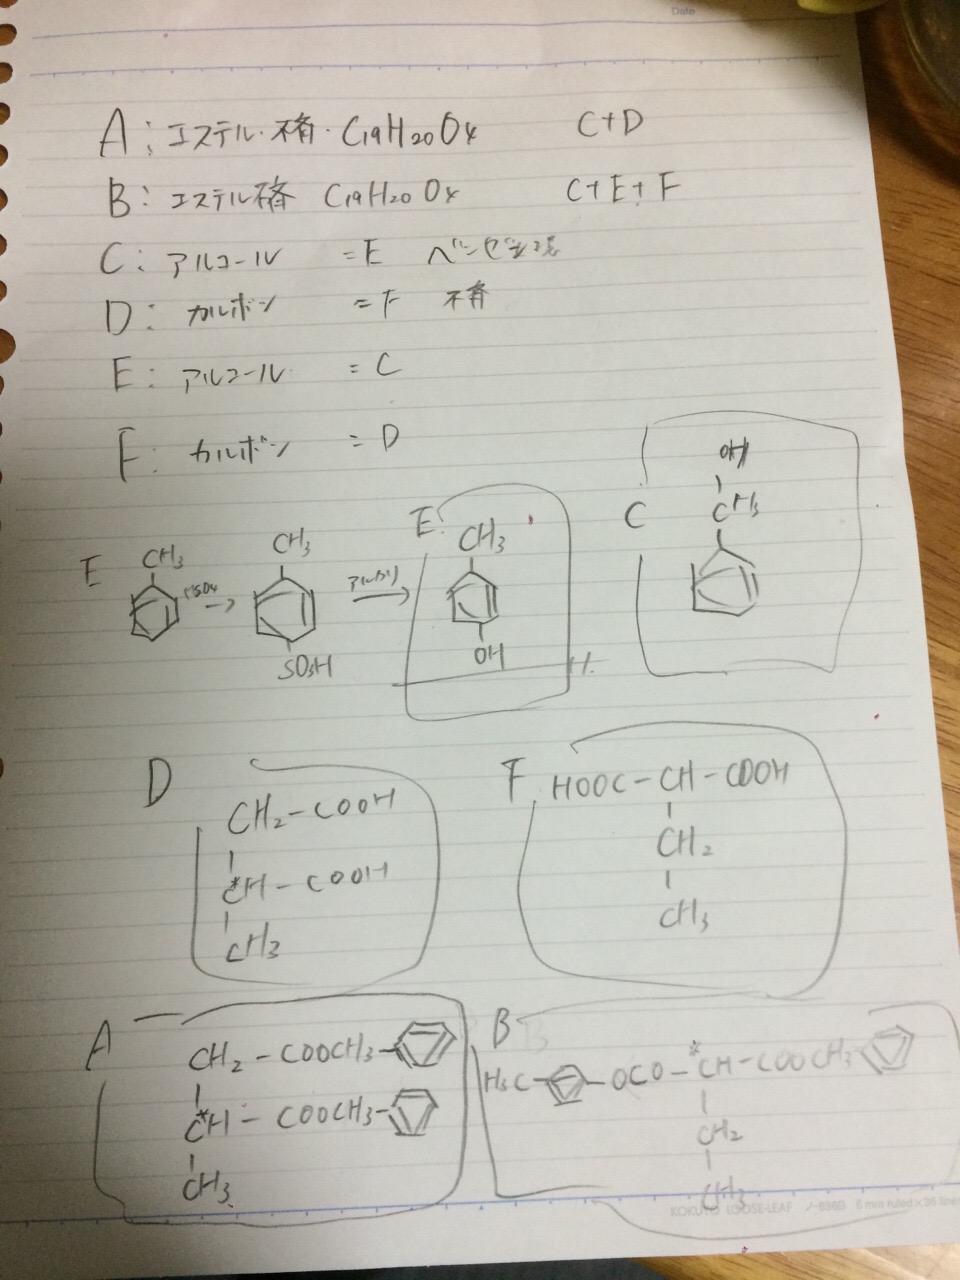 Date
A: エステル・不斉・C19H20O4 C+D
B: エステル不斉 C19H20O4 C+E+F
C: アルコール =E ベンゼン環
D: カルボン =F 不斉
E: アルコール =C
F: カルボン =D
E CH3 CH3 アルカリ E CH3
SO3H OH
C OH
CH3
D
CH2-COOH
*CH-COOH
CH3
F HOOC-CH-COOH
CH2
CH3
A CH2-COOCH3-
*CH-COOCH3-
CH3
B
H3C- -OCO-*CH-COOCH3-
CH2
CH3
KOKUYO LOOSE-LEAF ノ-836B 6mm ruled×36 lines